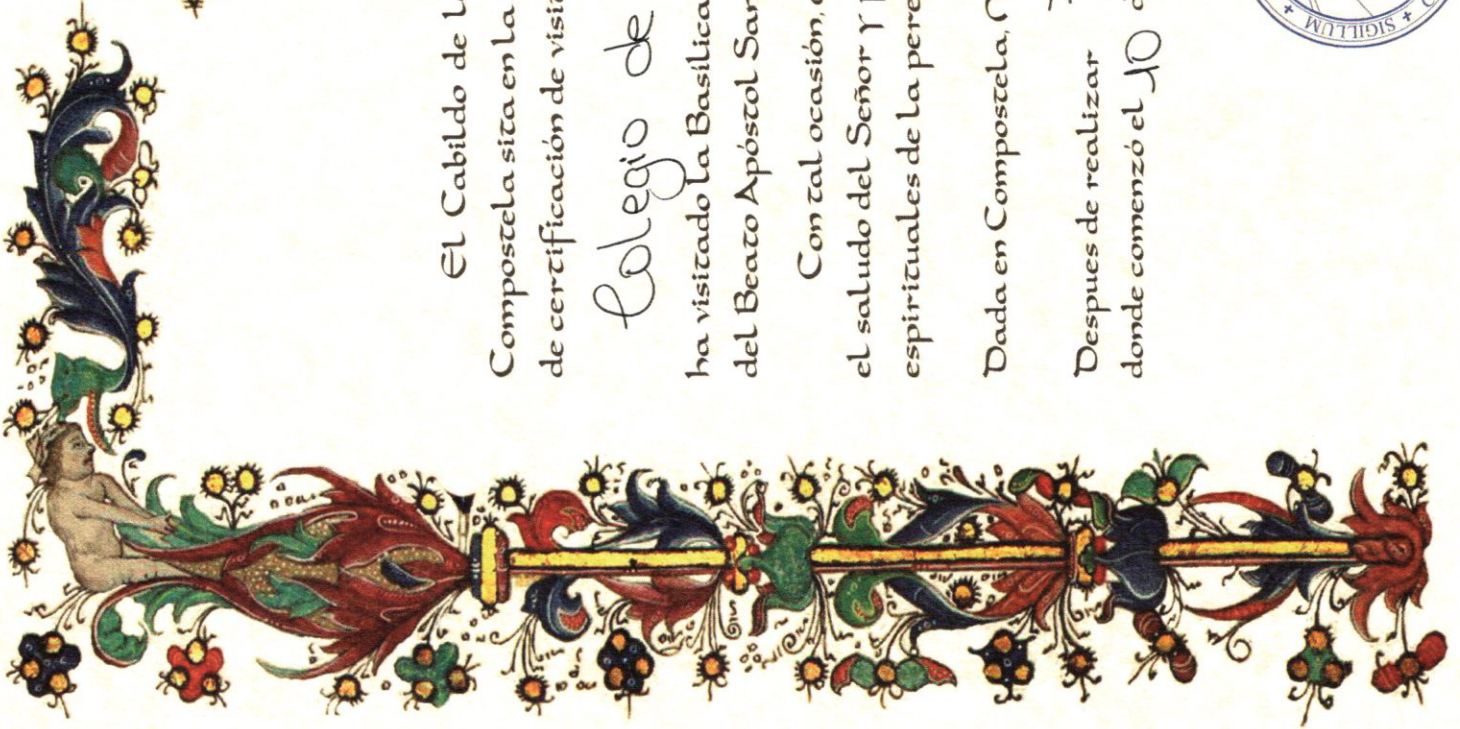 El Cabildo de
Compostela sita en la
de certificación de
Colegio de
ha visitado la Basílica
del Beato Apóstol
Con tal ocasión,
el saludo del Señor y
espirituales de la
Dada en Compostela,
Despues de realizar
donde comenzó el 10
SIGILLUM